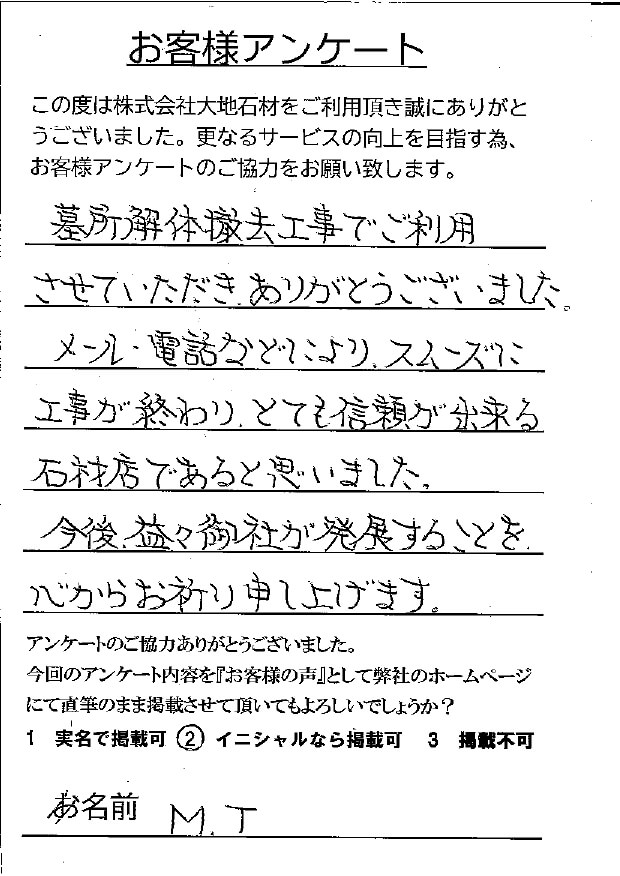 お客様アンケート
この度は株式会社大地石材をご利用頂き誠にありがと
うございました。更なるサービスの向上を目指す為、
お客様アンケートのご協力をお願い致します。
墓所解体撤去工事でご利用
させていただき、ありがとうございました。
メール・電話などにより、スムーズに
工事が終わり、とても信頼が出来る
石材店であると思いました。
今後、益々御社が発展することを、
心からお祈り申し上げます。
アンケートのご協力ありがとうございました。
今回のアンケート内容を『お客様の声』として弊社のホームページ
にて直筆のまま掲載させて頂いてもよろしいでしょうか？
1 実名で掲載可 ② イニシャルなら掲載可 3 掲載不可
お名前 M.T